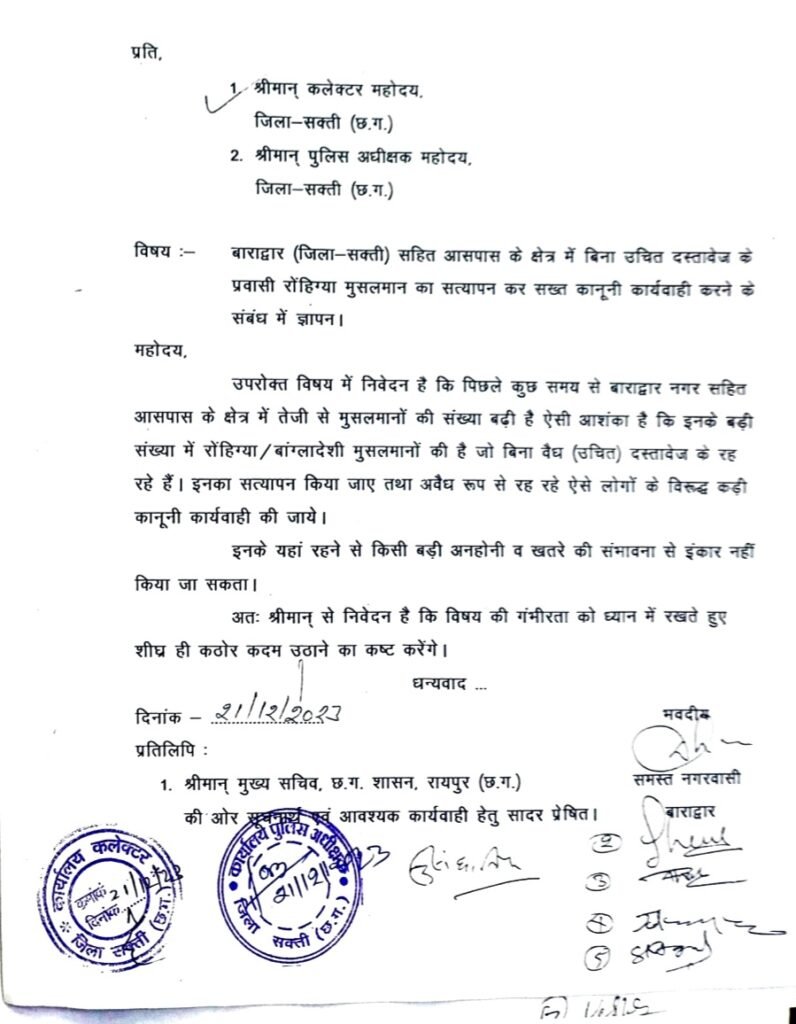 प्रति,
1. श्रीमान् कलेक्टर महोदय,
जिला–सक्ती (छ.ग.)
2. श्रीमान् पुलिस अधीक्षक महोदय,
जिला–सक्ती (छ.ग.)
विषय :– बाराद्वार (जिला–सक्ती) सहित आसपास के क्षेत्र में बिना उचित दस्तावेज के
प्रवासी रोंहिग्या मुसलमान का सत्यापन कर सख्त कानूनी कार्यवाही करने के
संबंध में ज्ञापन।
महोदय,
उपरोक्त विषय में निवेदन है कि पिछले कुछ समय से बाराद्वार नगर सहित
आसपास के क्षेत्र में तेजी से मुसलमानों की संख्या बढ़ी है ऐसी आशंका है कि इनके बड़ी
संख्या में रोंहिग्या/बांग्लादेशी मुसलमानों की है जो बिना वैध (उचित) दस्तावेज के रह
रहे हैं। इनका सत्यापन किया जाए तथा अवैध रूप से रह रहे ऐसे लोगों के विरूद्ध कड़ी
कानूनी कार्यवाही की जाये।
इनके यहां रहने से किसी बड़ी अनहोनी व खतरे की संभावना से इंकार नहीं
किया जा सकता।
अतः श्रीमान् से निवेदन है कि विषय की गंभीरता को ध्यान में रखते हुए
शीघ्र ही कठोर कदम उठाने का कष्ट करेंगे।
धन्यवाद ...
दिनांक – 21/12/2023
भवदीय
प्रतिलिपि :
समस्त नगरवासी
1. श्रीमान् मुख्य सचिव, छ.ग. शासन, रायपुर (छ.ग.)
बाराद्वार
की ओर सूचनार्थ एवं आवश्यक कार्यवाही हेतु सादर प्रेषित।
कार्यालय कलेक्टर
क्रमांक
दिनांक
21/12/23
जिला सक्ती (छ.ग.)
कार्यालय पुलिस अधीक्षक
21/12/23
जिला सक्ती (छ.ग.)
2
3
4
5